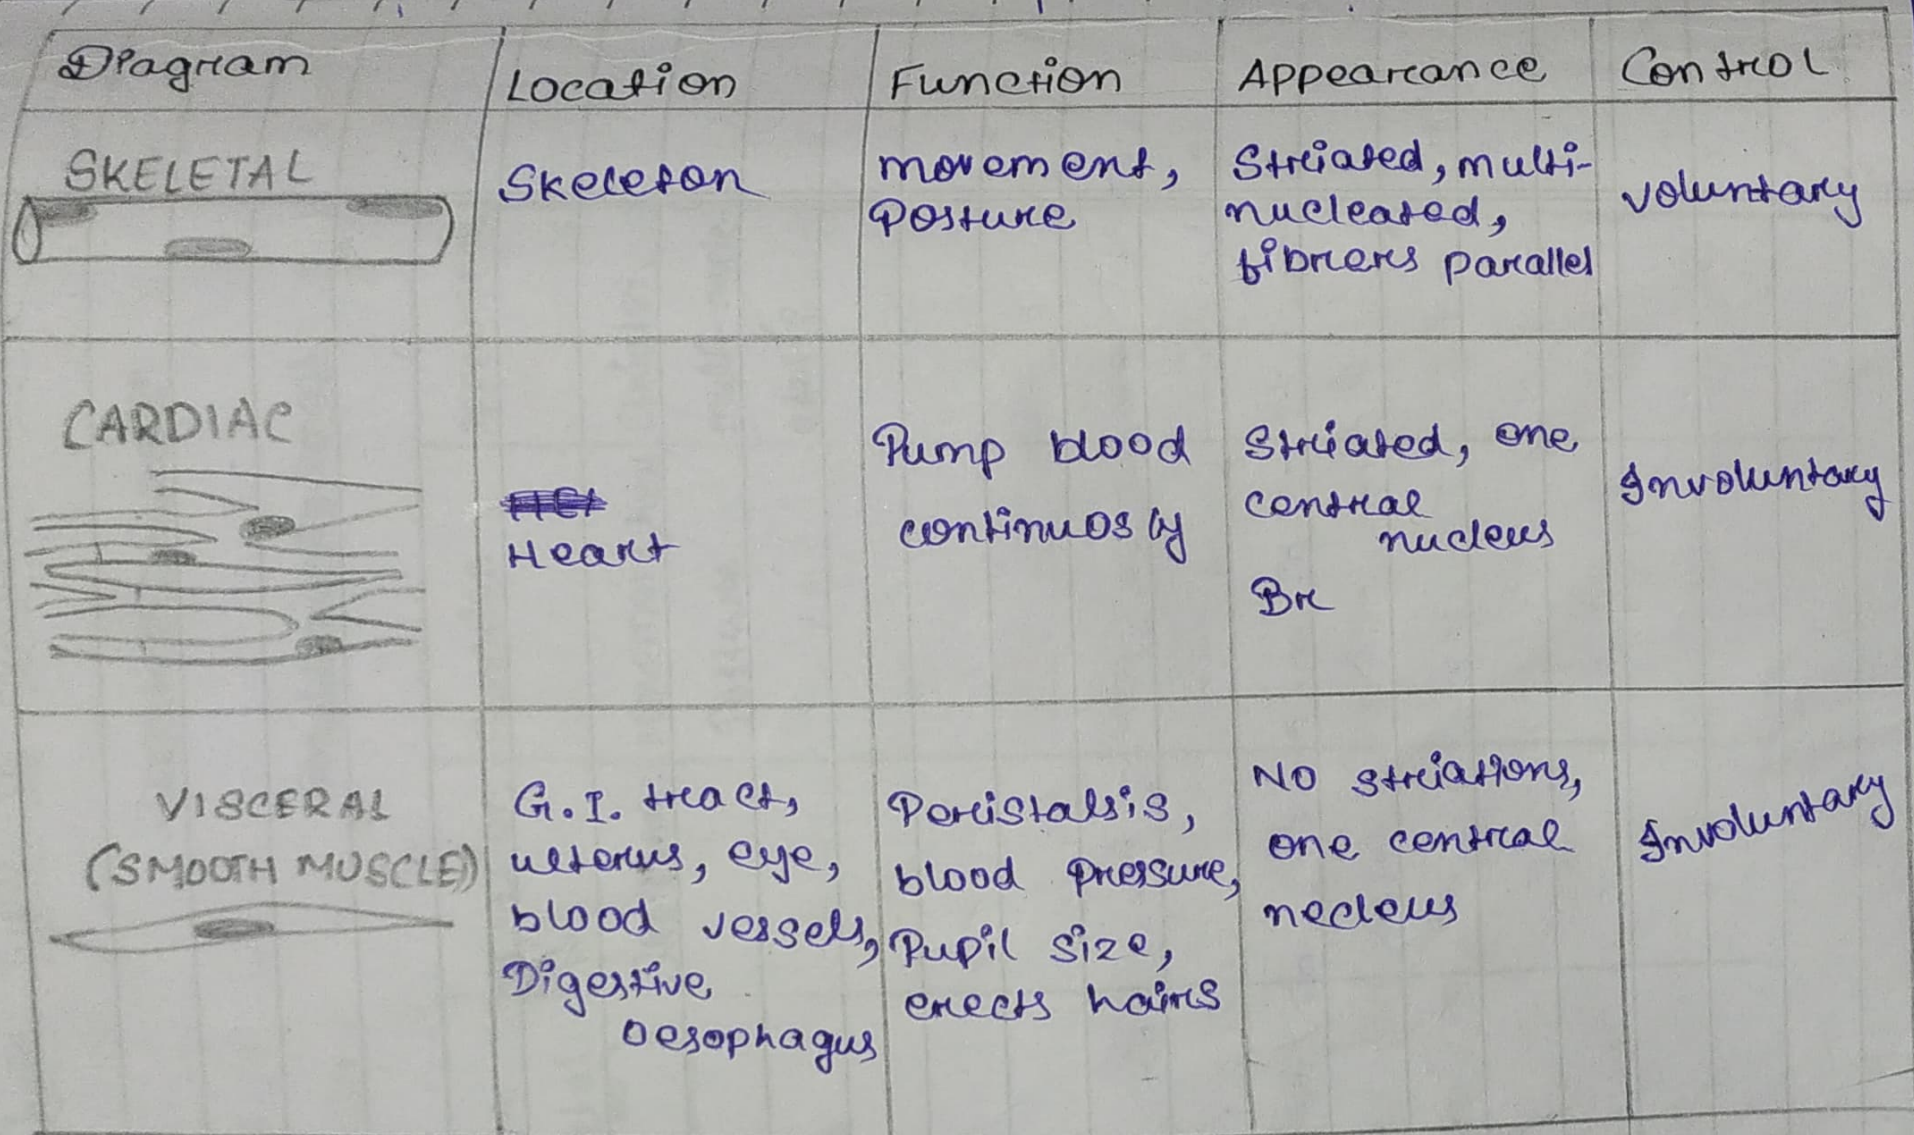 Diagram Location Function Appearance Control
SKELETAL
Skeleton
movement,
Posture
Striated, multi-
nucleated,
fibrers parallel
voluntary
CARDIAC
Heart
Pump blood
continuosly
Striated, one
central
nucleus
Br
Involuntary
VISCERAL
(SMOOTH MUSCLE)
G.I. tract,
uterus, eye,
blood vessels,
Digestive
Oesophagus
Peristalsis,
blood pressure,
Pupil size,
erects hairs
NO striations,
one central
necleus
Involuntary